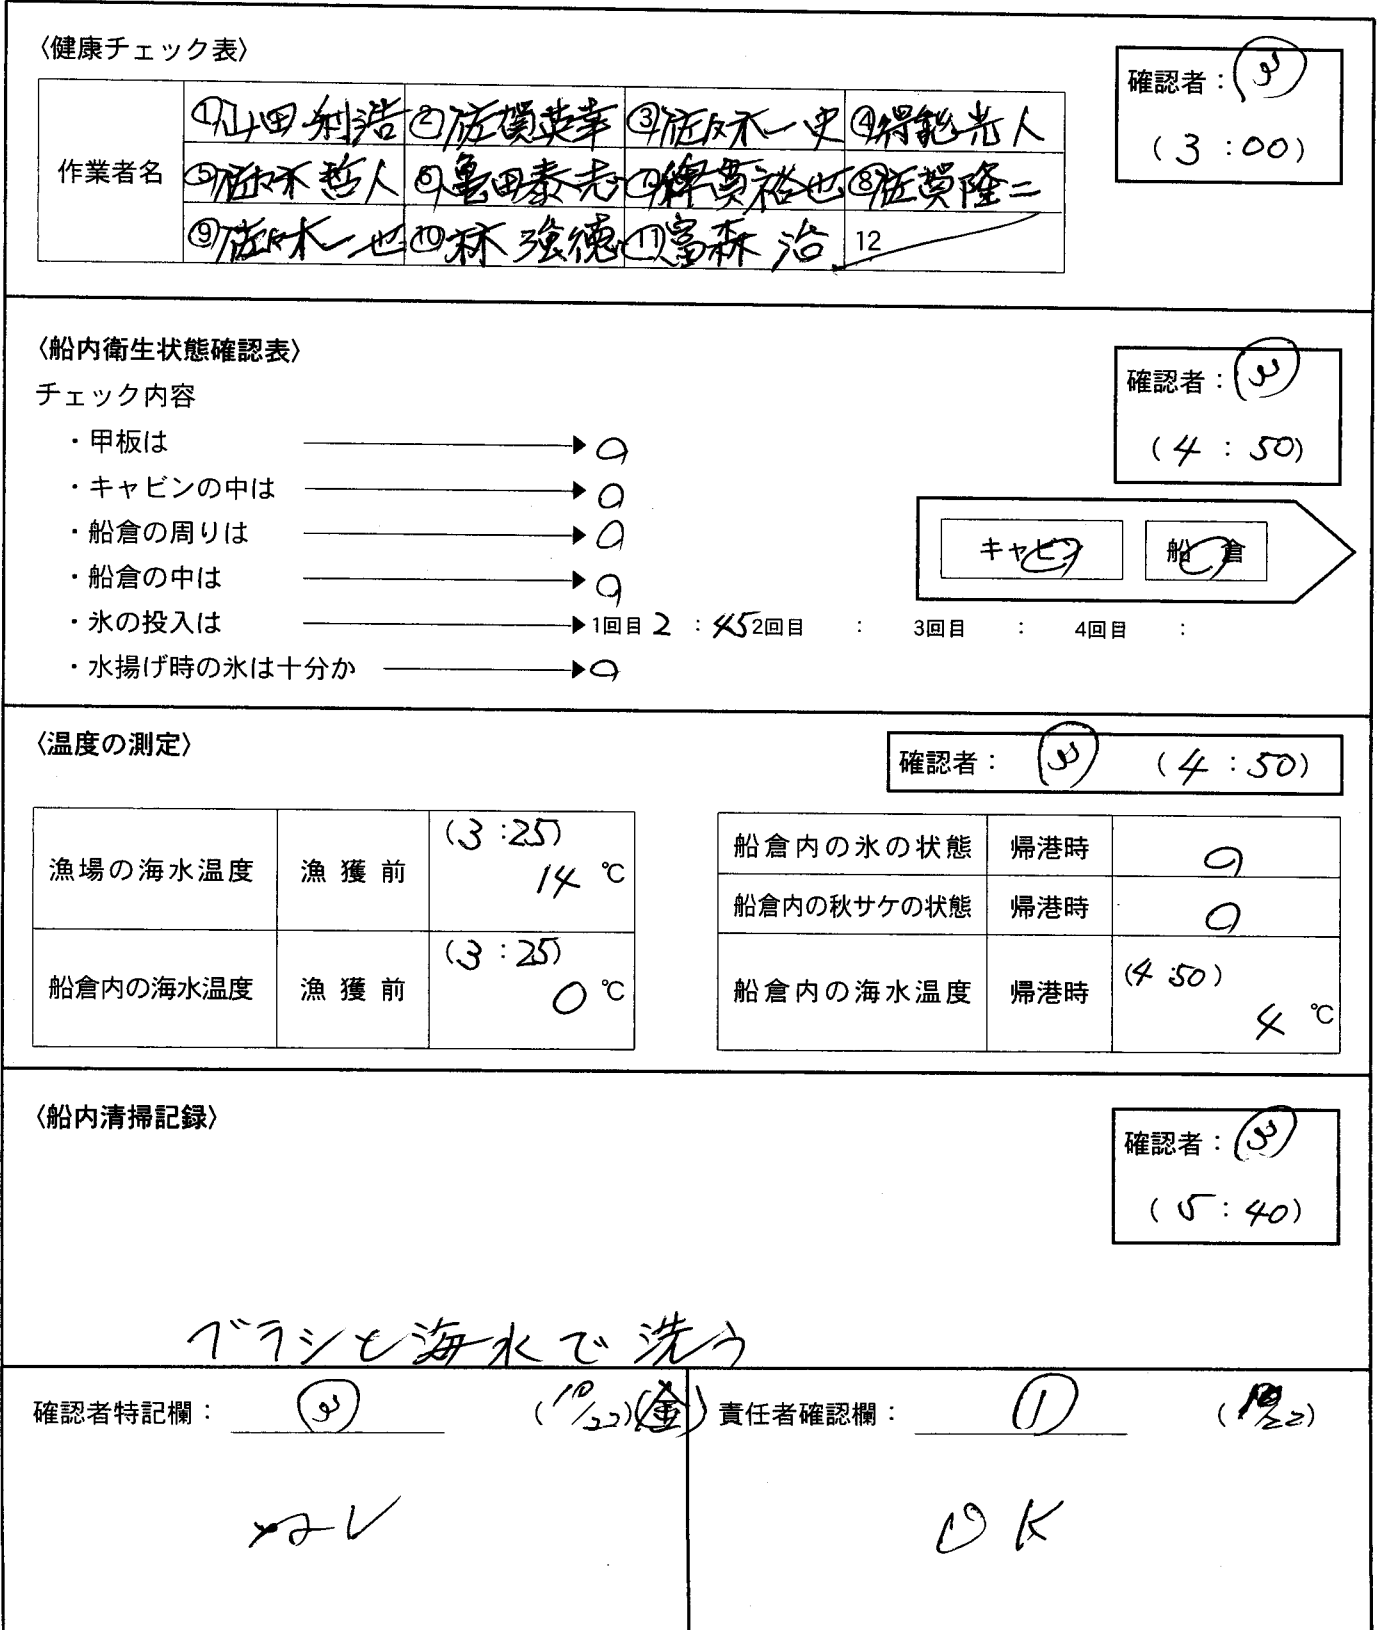 〈健康チェック表〉
確認者：③
(3：00)
作業者名
①山田利浩 ②佐賀英幸 ③佐々木一史 ④得能光人
⑤佐々木哲人 ⑥亀田泰志 ⑦綿貫裕也 ⑧佐賀隆二
⑨佐々木一也 ⑩林強徳 ⑪富森治 12
〈船内衛生状態確認表〉
確認者：③
(4：50)
チェック内容
・甲板は ○
・キャビンの中は ○
・船倉の周りは ○
・船倉の中は ○
キャビン 船倉
・氷の投入は 1回目 2：45 2回目 ： 3回目 ： 4回目 ：
・水揚げ時の氷は十分か ○
〈温度の測定〉
確認者： ③ (4：50)
漁場の海水温度 漁獲前 (3：25) 14 ℃
船倉内の海水温度 漁獲前 (3：25) 0 ℃
船倉内の氷の状態 帰港時 ○
船倉内の秋サケの状態 帰港時 ○
船倉内の海水温度 帰港時 (4:50) 4 ℃
〈船内清掃記録〉
確認者：③
(5：40)
ブラシと海水で洗う
確認者特記欄： ③ (10/22)(金)
なし
責任者確認欄： ① (10/22)
OK